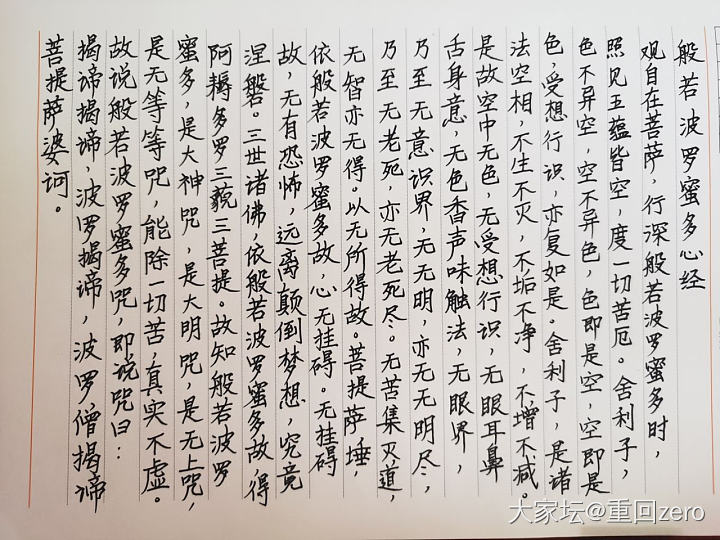 般若波罗蜜多心经
观自在菩萨，行深般若波罗蜜多时，
照见五蕴皆空，度一切苦厄。舍利子，
色不异空，空不异色，色即是空，空即是
色，受想行识，亦复如是。舍利子，是诸
法空相，不生不灭，不垢不净，不增不减。
是故空中无色，无受想行识，无眼耳鼻
舌身意，无色香声味触法，无眼界，
乃至无意识界，无无明，亦无无明尽，
乃至无老死，亦无老死尽。无苦集灭道，
无智亦无得。以无所得故。菩提萨埵，
依般若波罗蜜多故，心无挂碍。无挂碍
故，无有恐怖，远离颠倒梦想，究竟
涅磐。三世诸佛，依般若波罗蜜多故，得
阿耨多罗三藐三菩提。故知般若波罗
蜜多，是大神咒，是大明咒，是无上咒，
是无等等咒，能除一切苦，真实不虚。
故说般若波罗蜜多咒，即说咒曰：
揭谛揭谛，波罗揭谛，波罗僧揭谛
菩提萨婆诃。
大家坛@重回zero